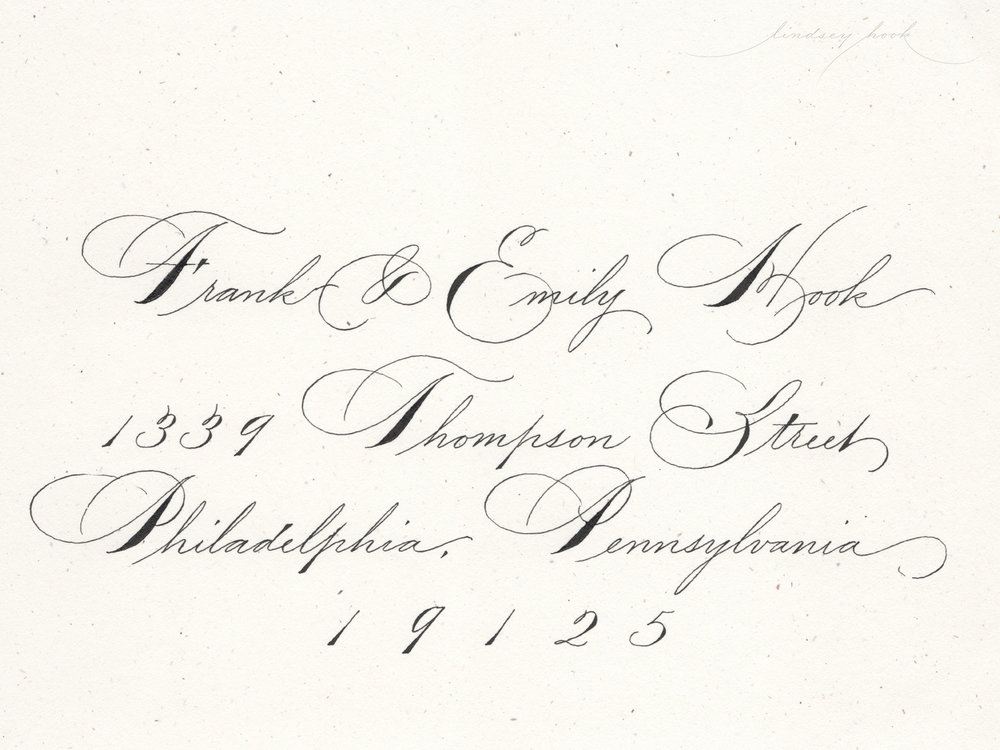 lindsey hook
Frank & Emily Hook
1339 Thompson Street
Philadelphia, Pennsylvania
19125